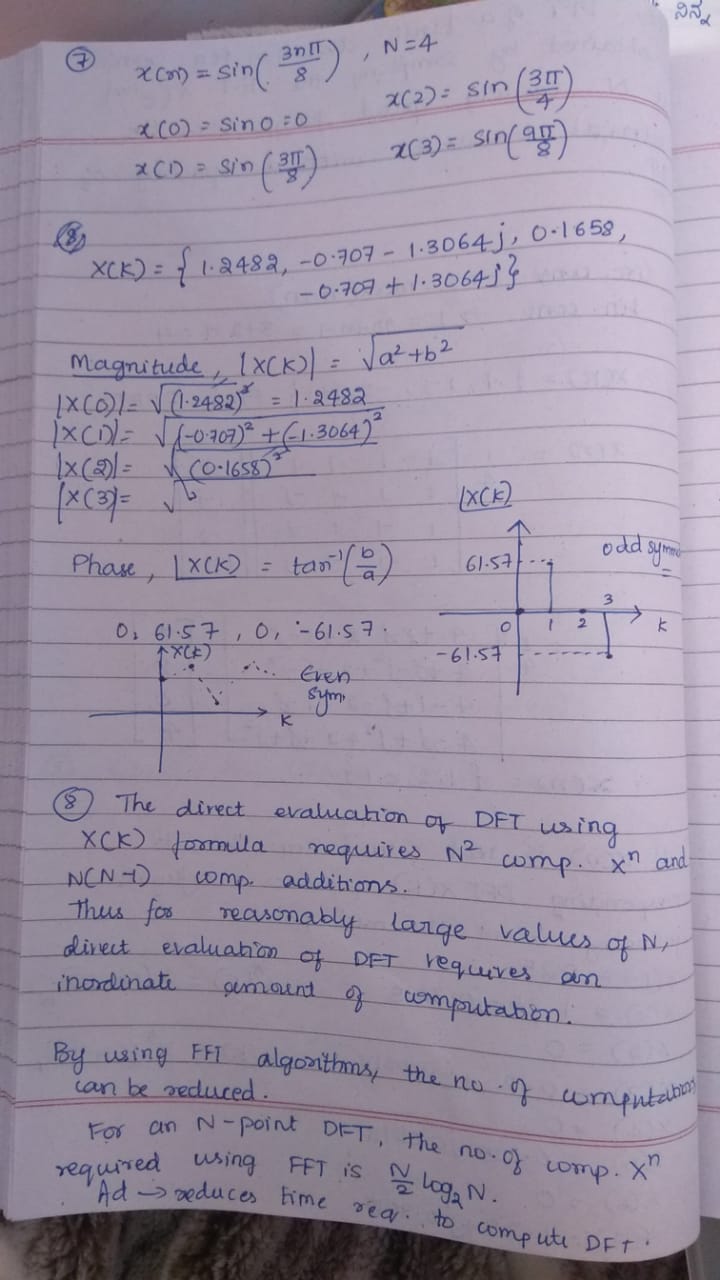 ನಿನ್ನ
⑦ x(n) = sin(3nπ/8), N=4
x(0) = sin0 = 0
x(1) = sin(3π/8)
x(2) = sin(3π/4)
x(3) = sin(9π/8)
⑧
X(K) = { 1.2482, -0.707 - 1.3064j, 0.1658,
-0.707 + 1.3064j }
Magnitude, |X(K)| = √a²+b²
|X(0)| = √(1.2482)² = 1.2482
|X(1)| = √(-0.707)² + (-1.3064)²
|X(2)| = √(0.1658)²
|X(3)| = √
Phase, ∠X(K) = tan⁻¹(b/a)
0, 61.57, 0, -61.57.
∠X(K)
61.57
odd symm
0 1 2 3 K
-61.57
X(K)
Even
sym.
K
⑧ The direct evaluation of DFT using
X(K) formula requires N² comp. xⁿ and
N(N-1) comp. additions.
Thus for reasonably large values of N,
direct evaluation of DFT requires an
inordinate amount of computation.
By using FFT algorithms, the no. of computations
can be reduced.
For an N-point DFT, the no. of comp. xⁿ
required using FFT is N/2 log₂N.
Ad → reduces time req. to compute DFT.